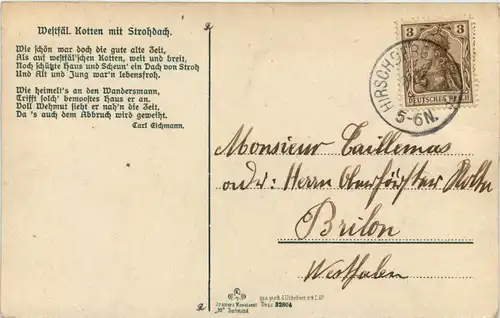 Westfäl. Kotten mit Strohdach.
Wie schön war doch die gute alte Zeit,
Als auf westfäl'schen Kotten, weit und breit,
Noch schützte Haus und Scheun' ein Dach von Stroh
Und Alt und Jung war'n lebensfroh.
Wie heimelt's an den Wandersmann,
Trifft solch' bemoostes Haus er an.
Voll Wehmut sieht er nah'n die Zeit,
Da 's auch dem Abbruch wird geweiht.
Carl Eichmann.
3 3
DEUTSCHES
HIRSCHB
5-6N.
Monsieur Taillemas
oder: Herrn Oberförster Nolte
Brilon
Westfalen
Dess. 32804
"10" Dortmund.